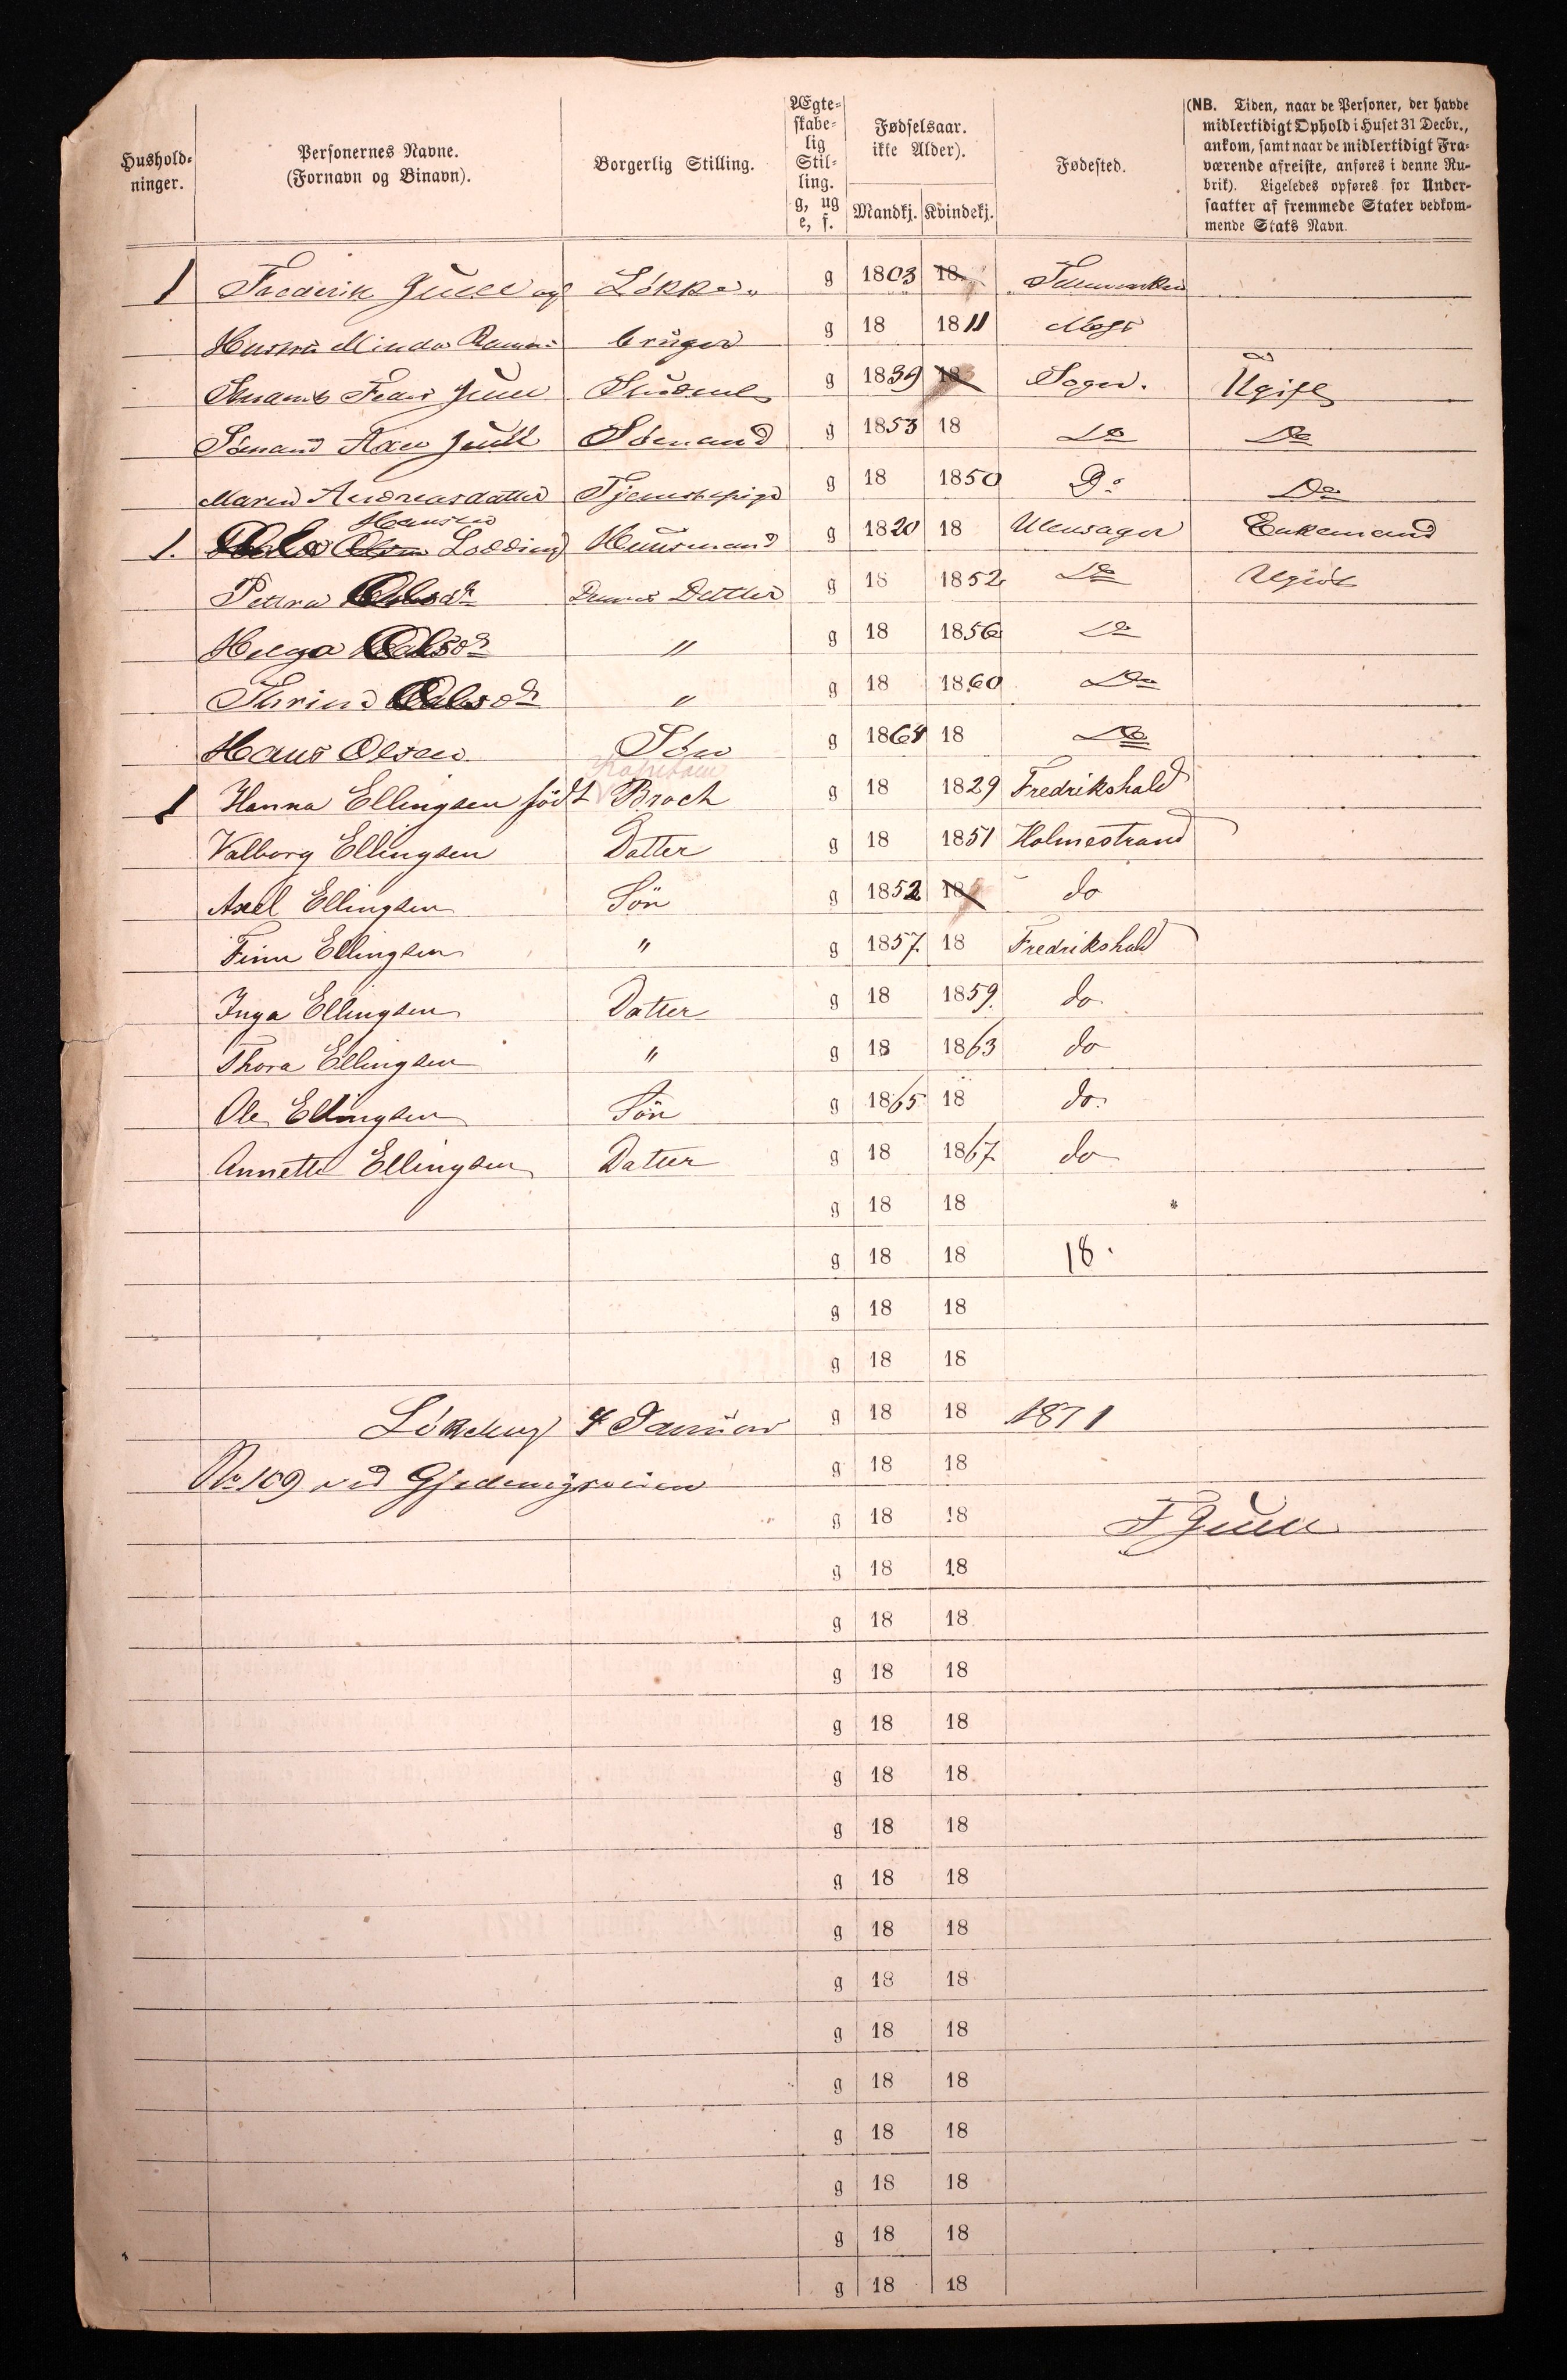 Hushold-
ninger.
Personernes Navne.
(Fornavn og Binavn).
Borgerlig Stilling.
Ægte-
skabe-
lig
Stil-
ling.
g, ug
e, f.
Fødselsaar.
ikke Alder).
Mandkj. Kvindekj.
Fødested.
(NB. Tiden, naar de Personer, der havde
midlertidigt Ophold i Huset 31 Decbr.,
ankom, samt naar de midlertidigt Fra-
værende afreiste, anføres i denne Ru-
brik). Ligeledes opføres for Under-
saatter af fremmede Stater vedkom-
mende Stats Navn.
1 Frederik Juell og Løkke- g 1803 18
Hustru Minda bruger g 18 1811 Moss
Juell Student g 1839 18 Sogn. Ugift
Sømand Juell Sømand g 1853 18 Do Do
Maren Andreasdatter Tjenestepige g 18 1850 Do Do
Hansen
1. Ole Lodding Huusmand g 1820 18 Ullensager Enkemand
Petra Olsdr Datter g 18 1852 Do Ugivt
Helga Olsdr " g 18 1856 Do
Thrine Olsdr " g 18 1860 Do
Hans Olsen Søn g 1864 18 Do
1 Hanna Ellingsen født Broch g 18 1829 Fredrikshald
Valborg Ellingsen Datter g 18 1851 Holmestrand
Axel Ellingsen Sön g 1852 18 do
Finn Ellingsen " g 1857. 18 Fredrikshald
Inga Ellingsen Datter g 18 1859. do
Thora Ellingsen " g 18 1863 do
Ole Ellingsen Sön g 1865 18 do.
Annette Ellingsen Datter g 18 1867 do
g 18 18
g 18 18 18.
g 18 18
g 18 18
4 Januar g 18 18 1871
No 109 ved g 18 18
g 18 18 F Juell
g 18 18
g 18 18
g 18 18
g 18 18
g 18 18
g 18 18
g 18 18
g 18 18
g 18 18
g 18 18
g 18 18
g 18 18
g 18 18
g 18 18
g 18 18